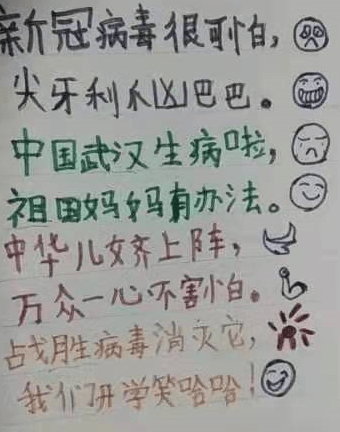 新冠病毒很可怕，
尖牙利爪凶巴巴。
中国武汉生病啦，
祖国妈妈有办法。
中华儿女齐上阵，
万众一心不害怕。
战胜病毒消灭它，
我们开学笑哈哈！